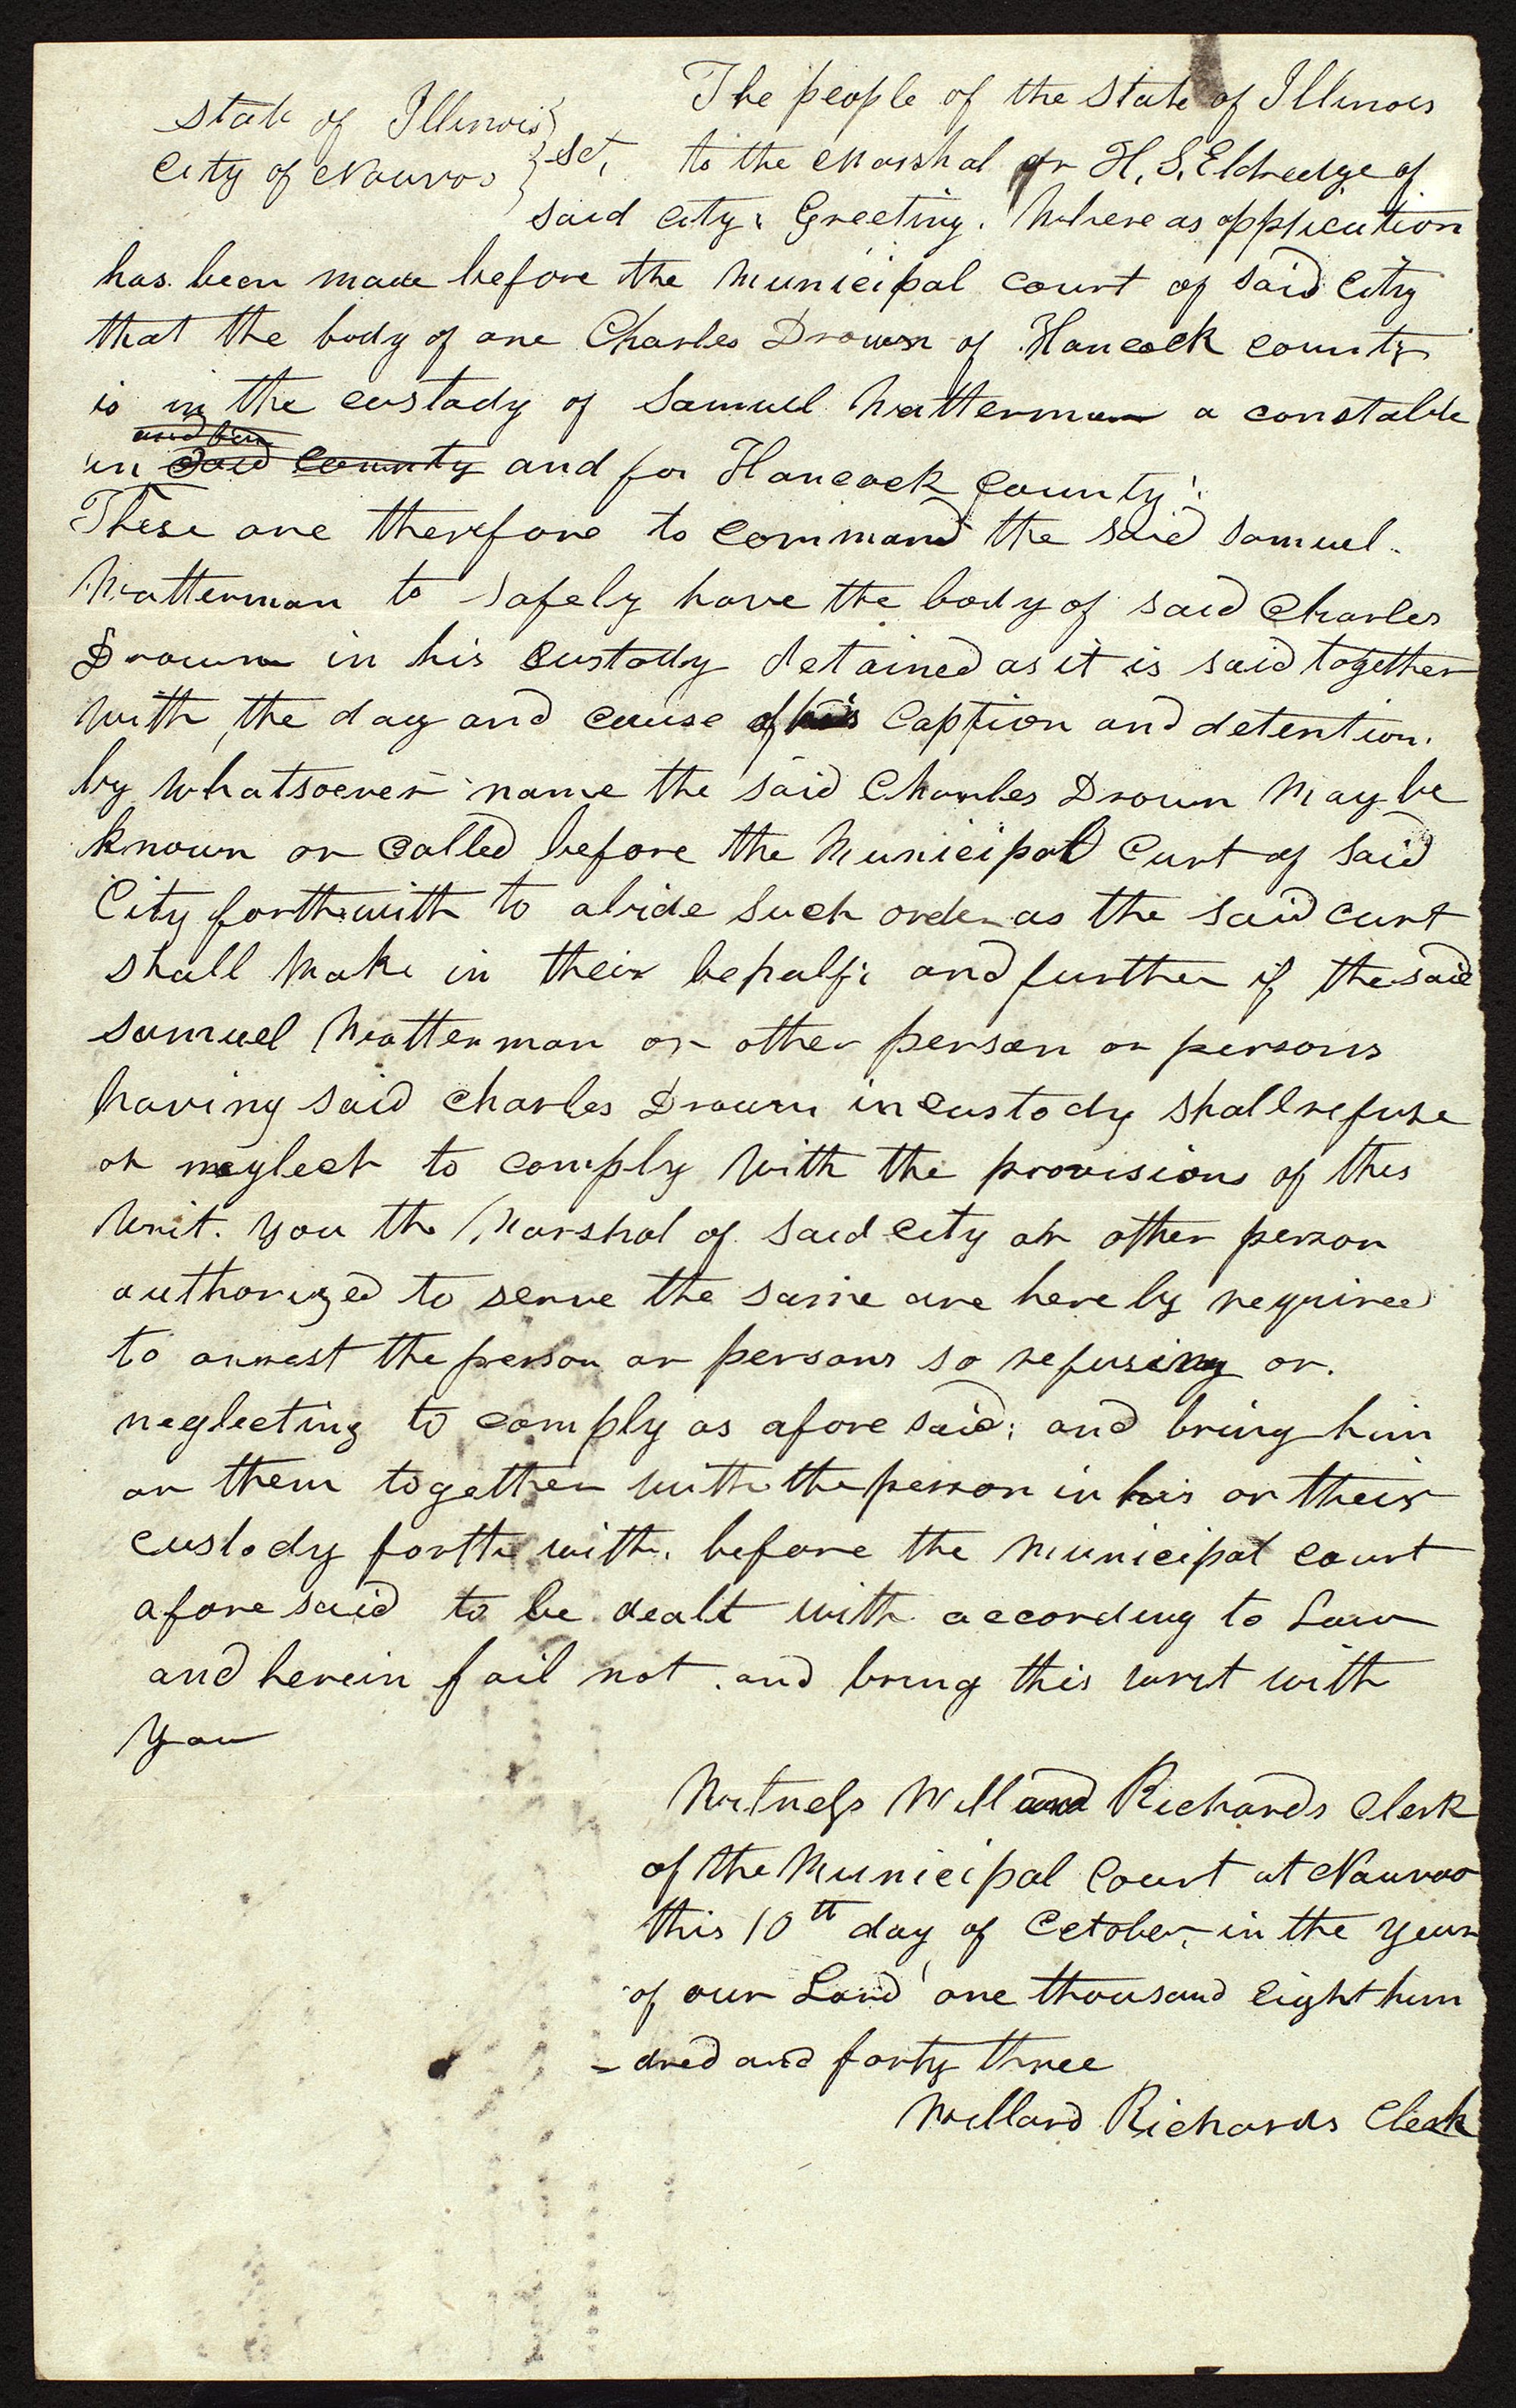 State of Illinois } The people of the State of Illinois
City of Nauvoo } Sct, to the Marshal or H. S. Eldredge of
said city: Greeting. Where as application
has been made before the Municipal court of said city
that the body of one Charles Drown of Hancock county
is in the custody of Samuel Matterman a constable
in said county and for Hancock County:
These are therefore to command the said Samuel
Matterman to safely have the body of said Charles
Drown in his custody detained as it is said together
with the day and cause of his Caption and detention.
by whatsoever name the said Charles Drown May be
known or called before the Municipal Curt of said
City forthwith to abide such order as the said curt
shall Make in their behalf; and further if the said
Samuel Matterman or other person or persons
having said Charles Drown in custody shall refuse
or neglect to comply with the provisions of this
writ. you the Marshal of said city or other person
authorized to serve the same are here by required
to arrest the person or persons so refusing or.
neglecting to comply as afore said; and bring him
or them together with the person in his or their
custody forth with. before the Municipal court
afore said to be dealt with according to Law
and herein fail not. and bring this writ with
you
Witness Willard Richards Clerk
of the Municipal Court at Nauvoo
this 10th day of October, in the year
of our Lord one thousand Eight hun
-dred and forty three
Willard Richards Clerk